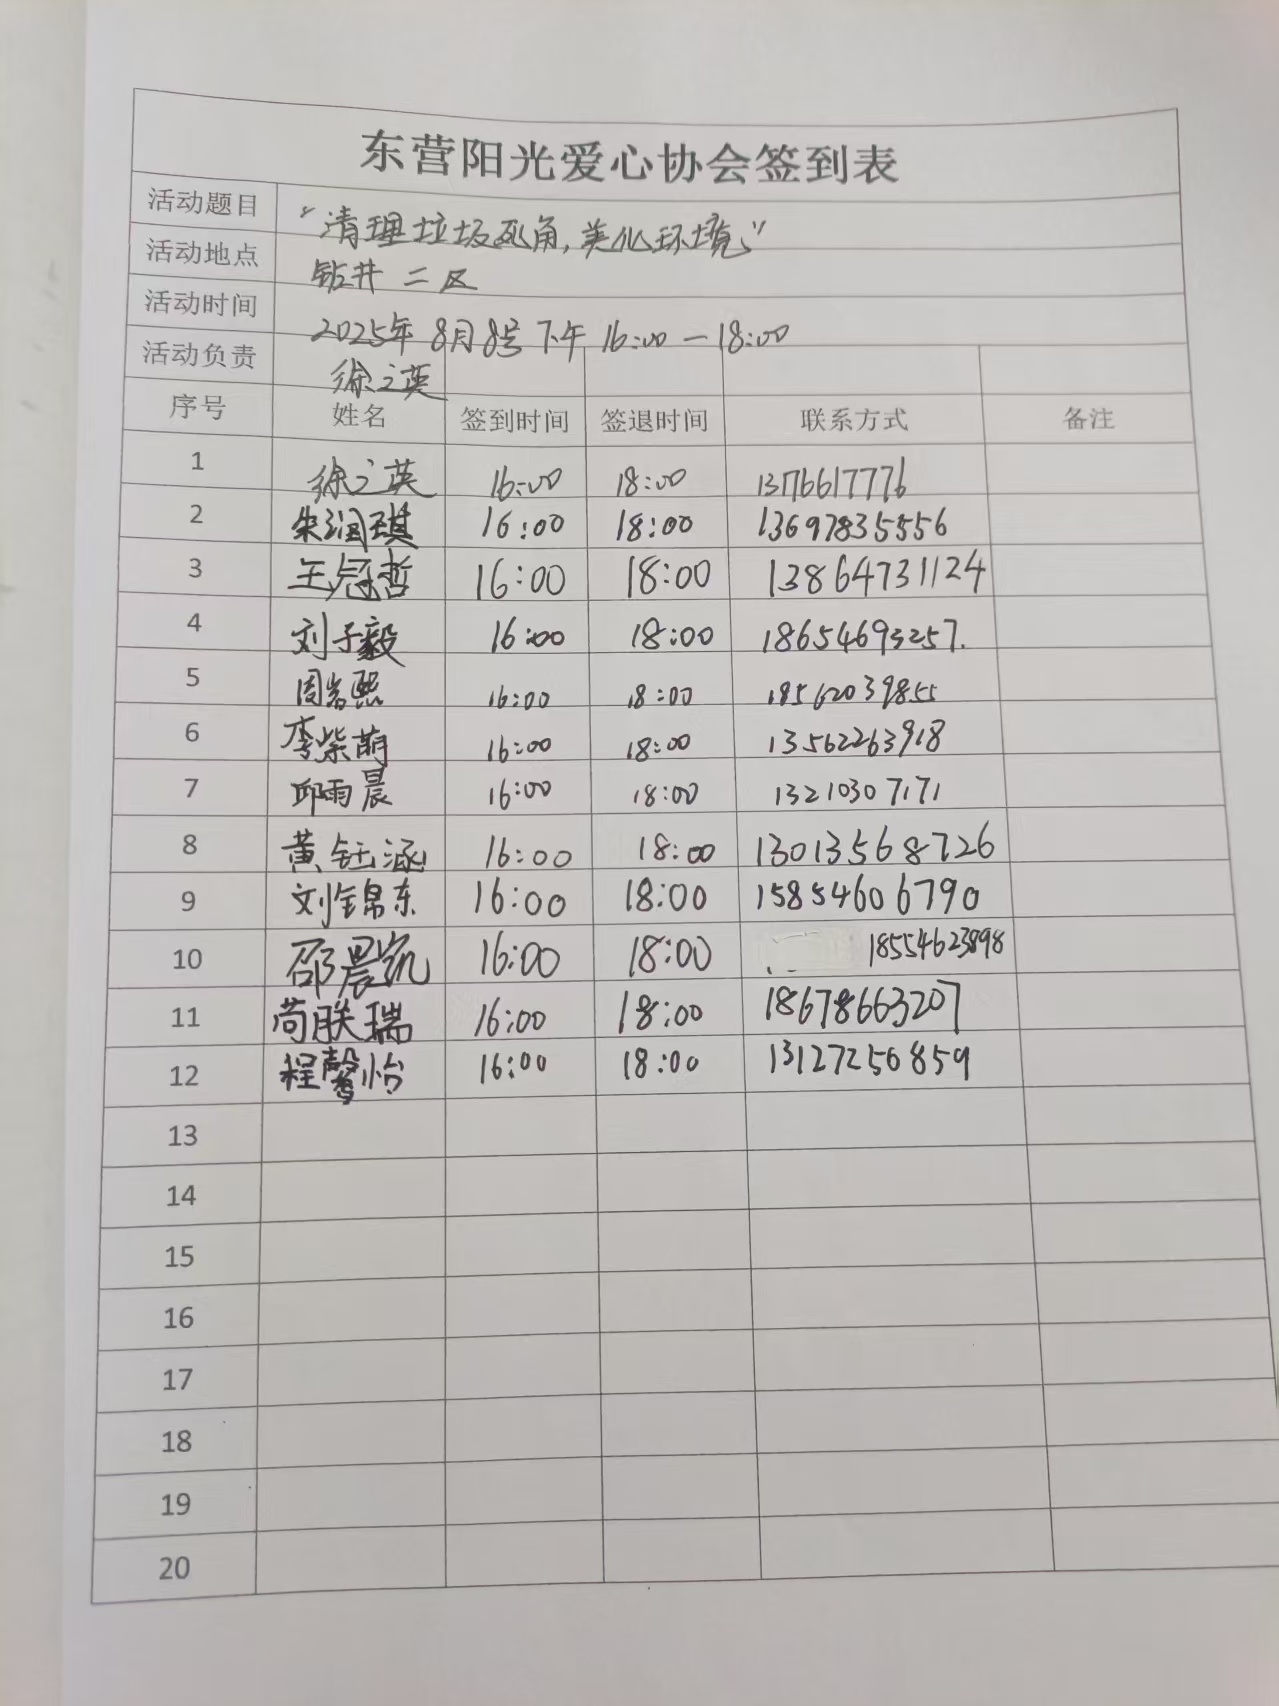 东营阳光爱心协会签到表
活动题目 “清理垃圾死角,美化环境”
活动地点 钻井二区
活动时间 2025年8月8号下午16:00—18:00
活动负责 徐之英
序号 姓名 签到时间 签退时间 联系方式 备注
1 徐之英 16:00 18:00
2 朱润琪 16:00 18:00 13697835556
3 王冠哲 16:00 18:00 13864731124
4 刘子毅 16:00 18:00 18654693257.
5 周岩熙 16:00 18:00 18562039855
6 李紫萌 16:00 18:00 13562263918
7 邱雨晨 16:00 18:00 13210307171
8 黄钰涵 16:00 18:00 13013568726
9 刘锦东 16:00 18:00 15854606790
10 邵晨凯 16:00 18:00 18554623898
11 苘朕瑞 16:00 18:00 18678663207
12 程馨怡 16:00 18:00 13127250859
13
14
15
16
17
18
19
20